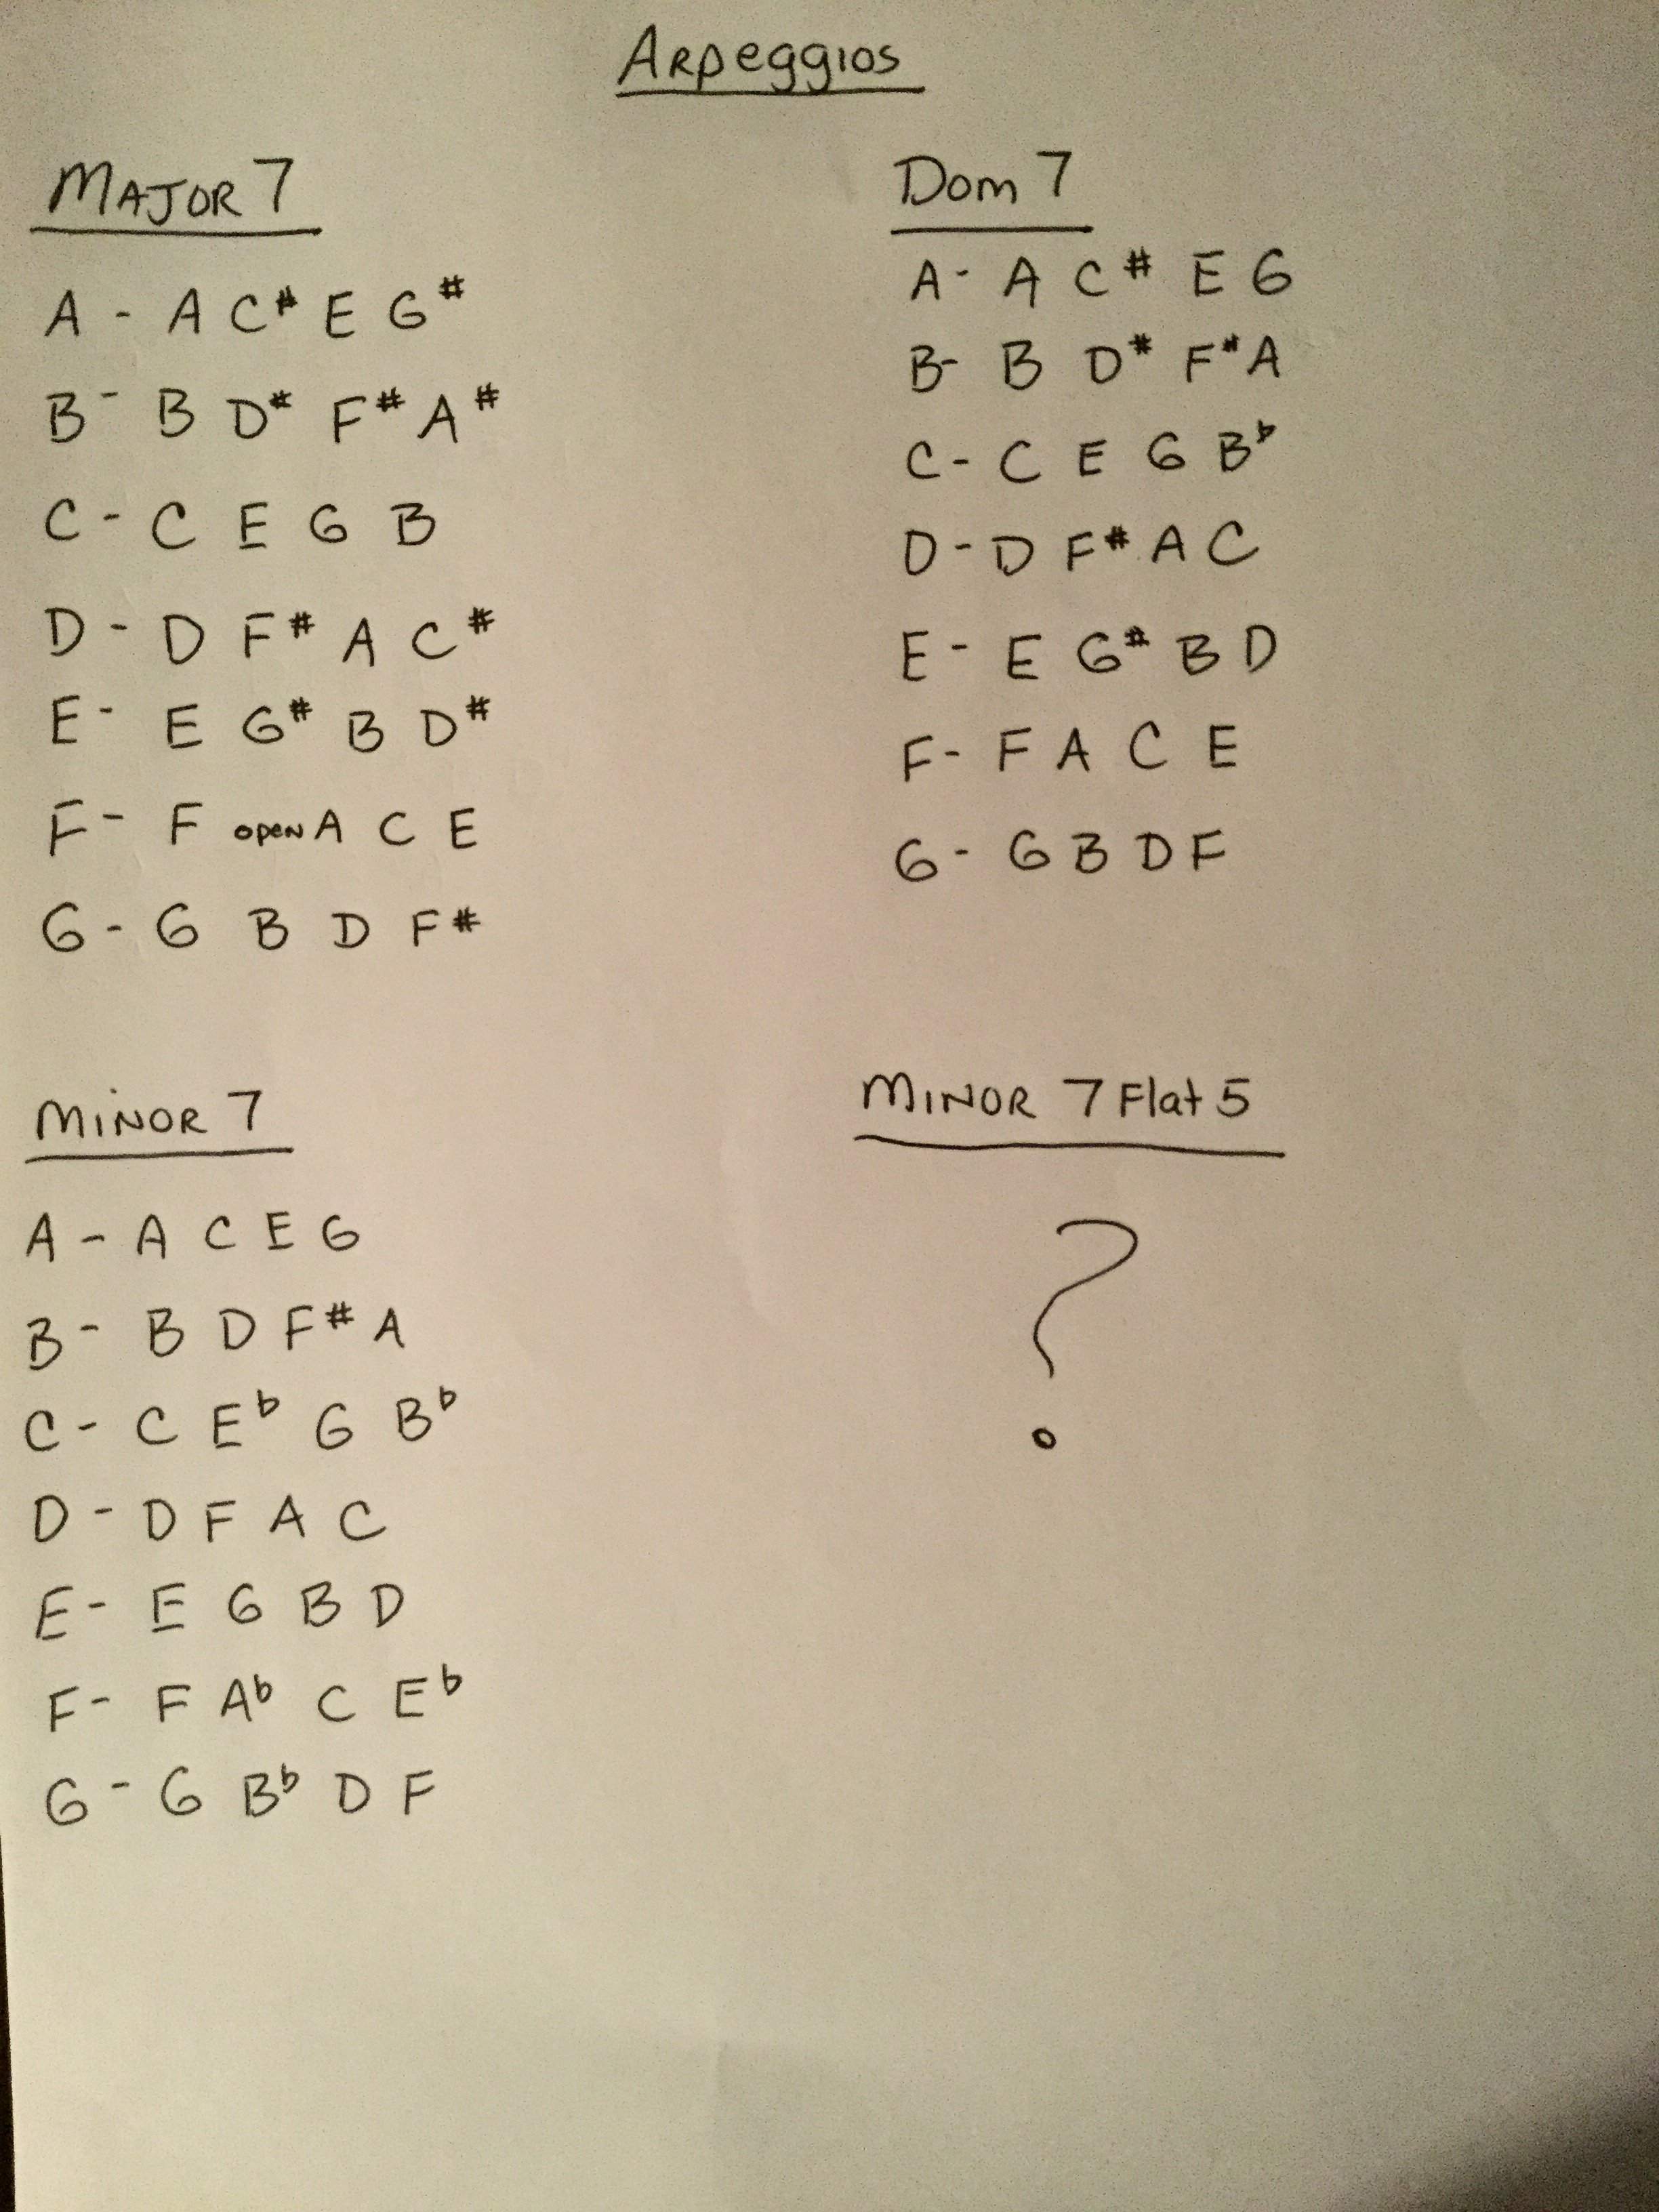 Arpeggios
Major 7
A - A C# E G#
B - B D# F# A#
C - C E G B
D - D F# A C#
E - E G# B D#
F - F open A C E
G - G B D F#
Dom 7
A - A C# E G
B - B D# F# A
C - C E G B♭
D - D F# A C
E - E G# B D
F - F A C E
G - G B D F
Minor 7
A - A C E G
B - B D F# A
C - C E♭ G B♭
D - D F A C
E - E G B D
F - F A♭ C E♭
G - G B♭ D F
Minor 7 Flat 5
?